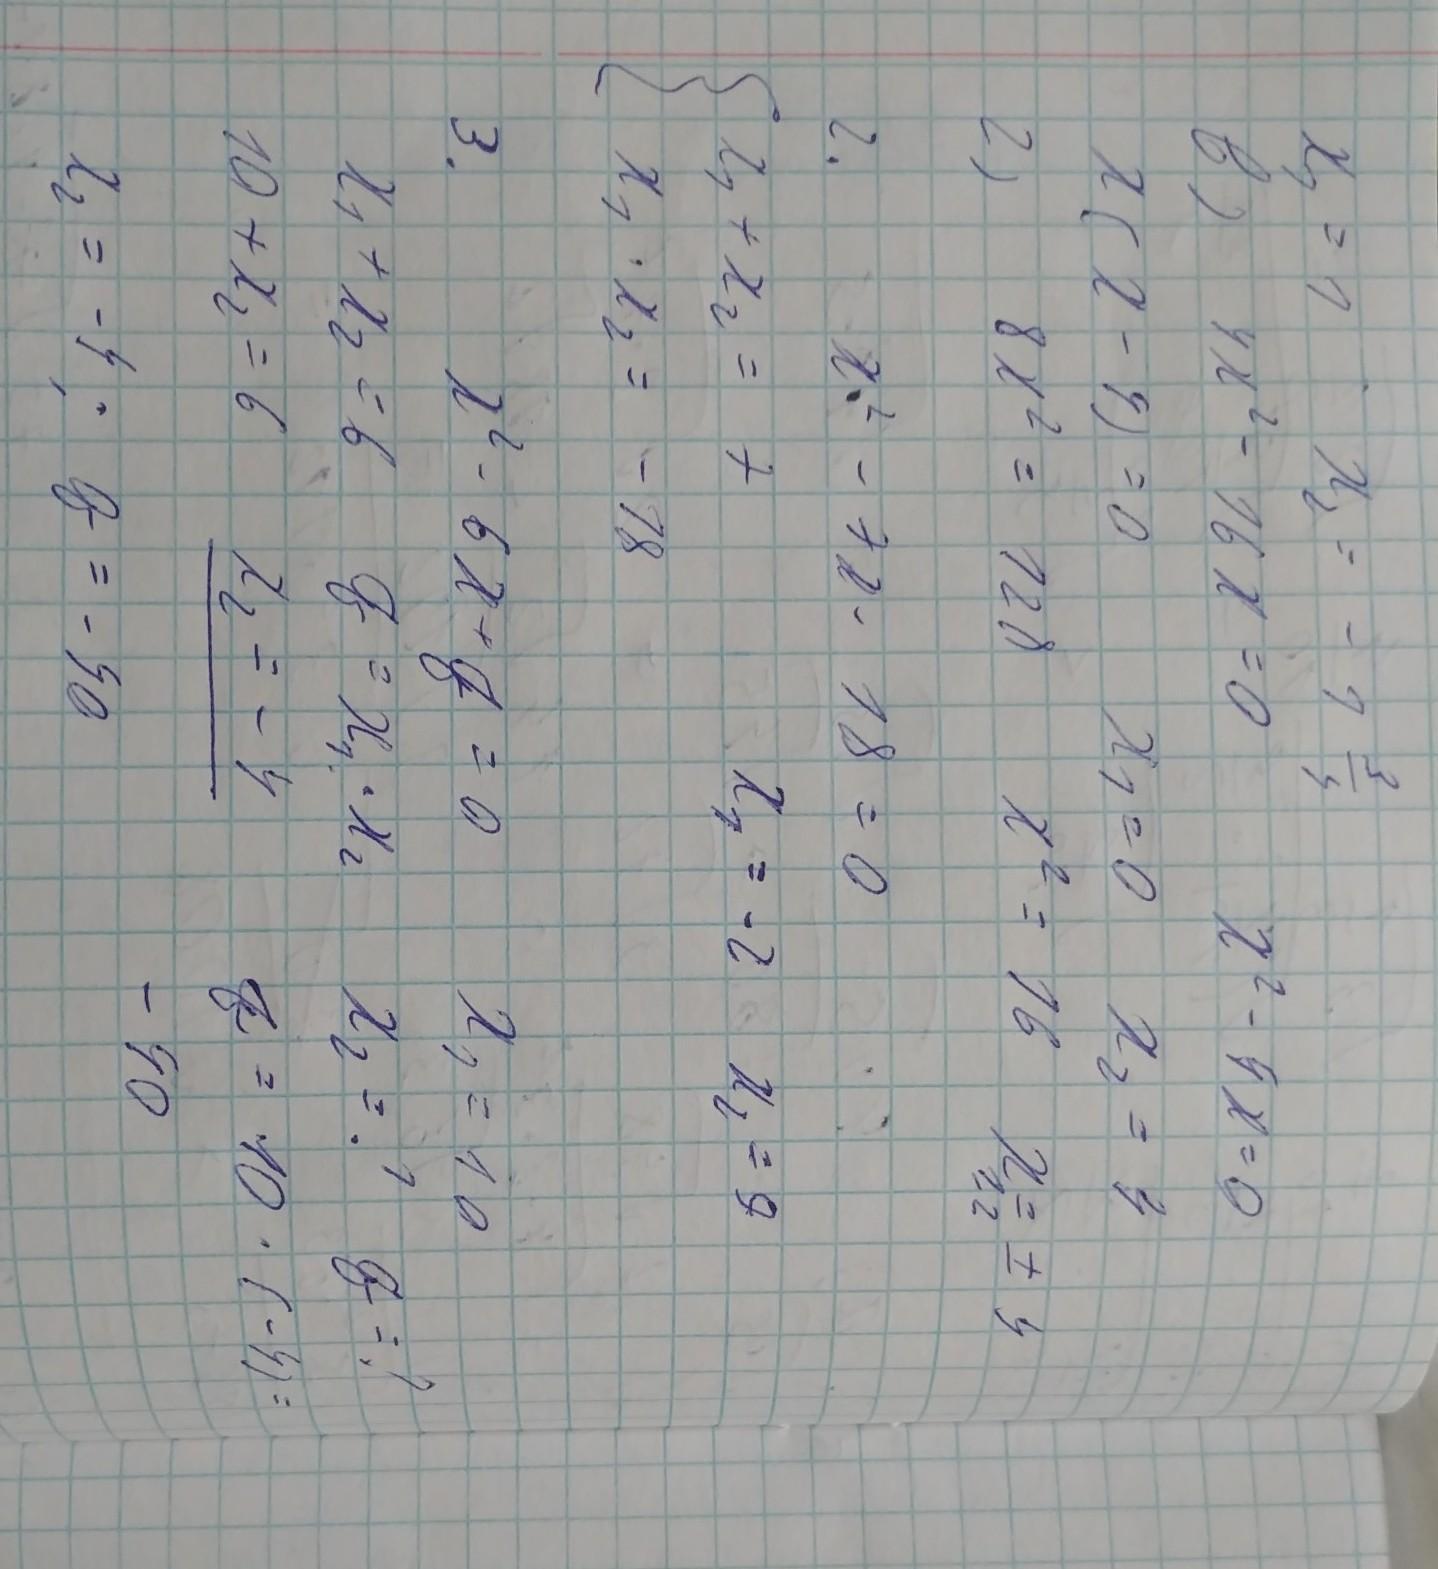 x₁ = 1 x₂ = - 1 3/4
в) 4x² - 16x = 0 x² - 4x = 0
x(x - 4) = 0 x₁ = 0 x₂ = 4
г) 8x² = 128 x² = 16 x₁,₂ = ∓ 4
2. x² - 7x - 18 = 0
{ x₁ + x₂ = 7 x₁ = -2 x₂ = 9
x₁ · x₂ = -18
3. x² - 6x + q = 0 x₁ = 10
x₁ + x₂ = 6 q = x₁ · x₂ x₂ = ? q = ?
10 + x₂ = 6 x₂ = -4 q = 10 · (-4) =
- 40
x₂ = -4; q = -40